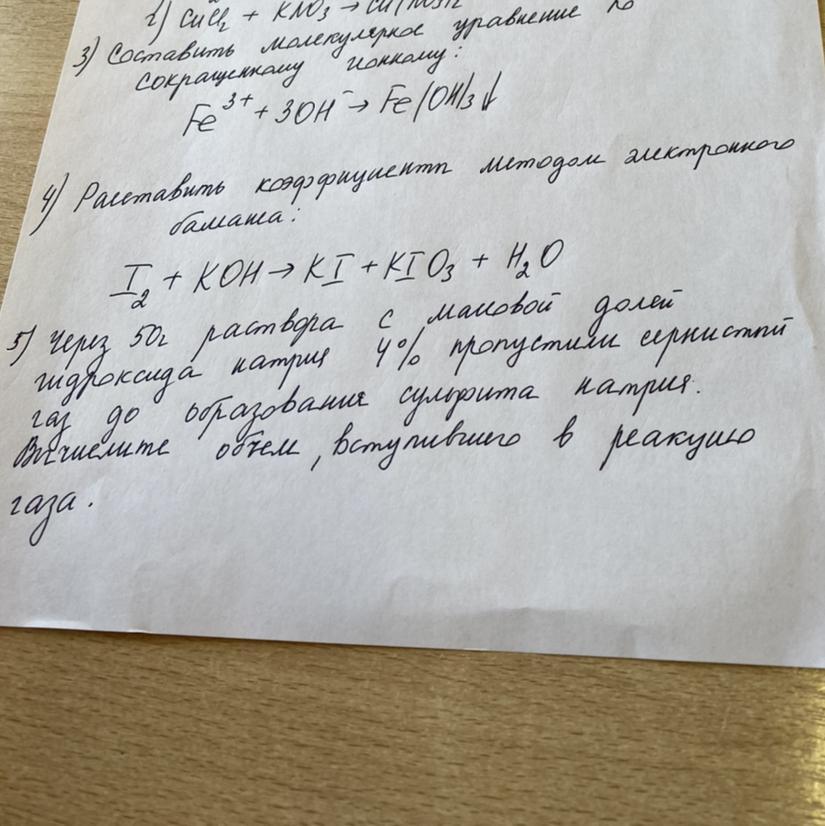 2) CuCl₂ + KNO₃ → Cu(NO₃)₂
3) Составить молекулярное уравнение по
сокращенному ионному:
Fe³⁺ + 3OH⁻ → Fe(OH)₃↓
4) Расставить коэффициенты методом электронного
баланса:
I₂ + KOH → KI + KIO₃ + H₂O
5) Через 50г раствора с массовой долей
гидроксида натрия 4% пропустили сернистый
газ до образования сульфита натрия.
Вычислите объем, вступившего в реакцию
газа.